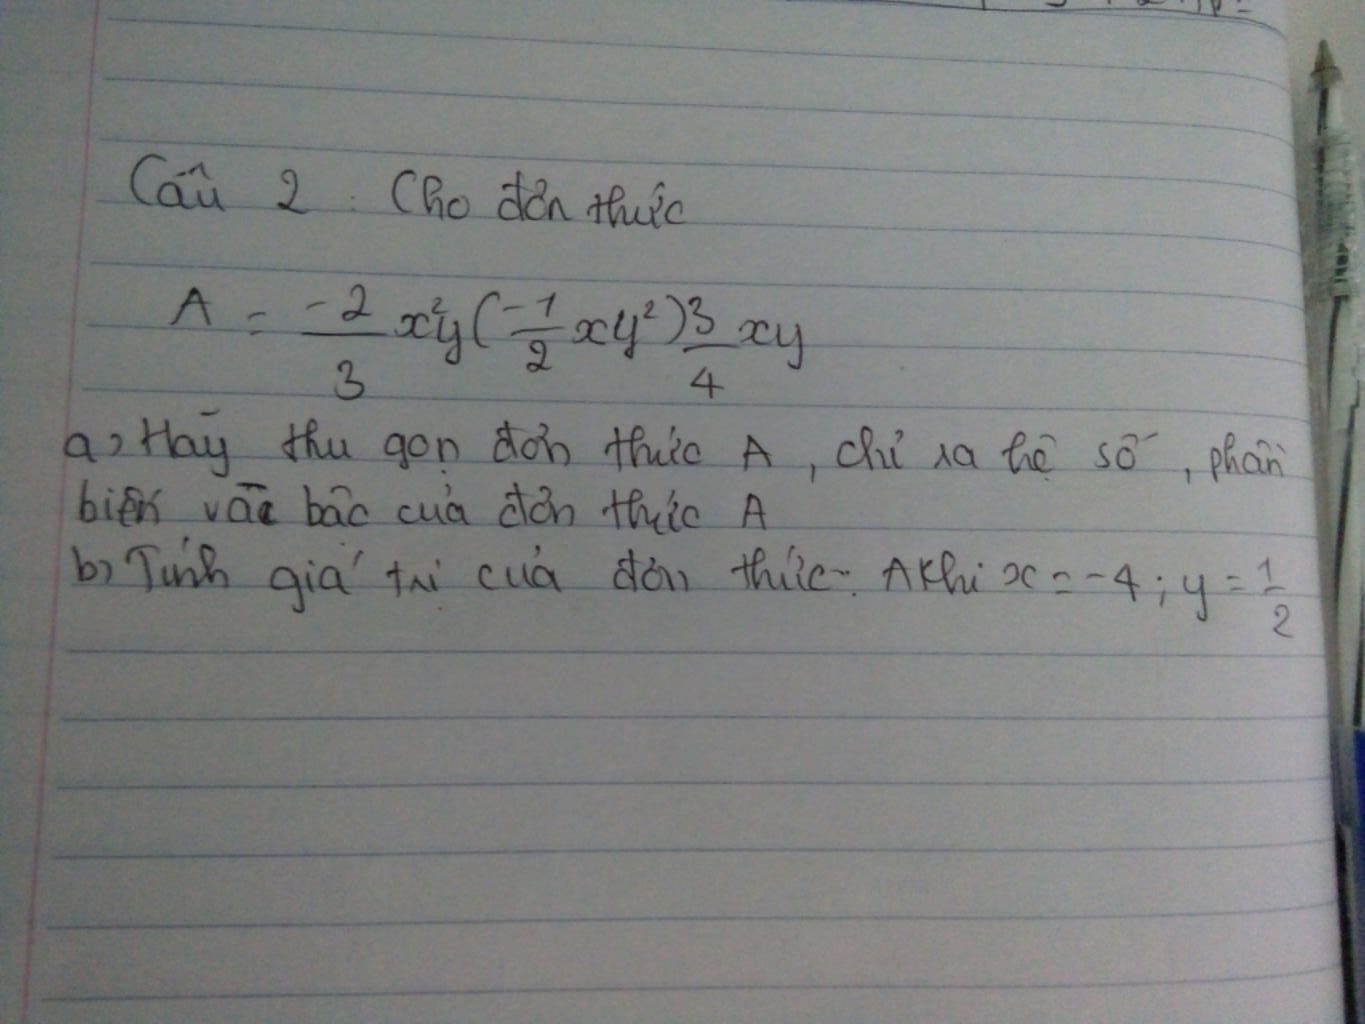 Câu 2 : Cho đơn thức
A = -2/3 x²y(-1/2 xy²)3/4 xy
a, Hãy thu gọn đơn thức A, chỉ ra hệ số, phần
biến và bậc của đơn thức A
b, Tính giá trị của đơn thức A khi x = -4; y = 1/2